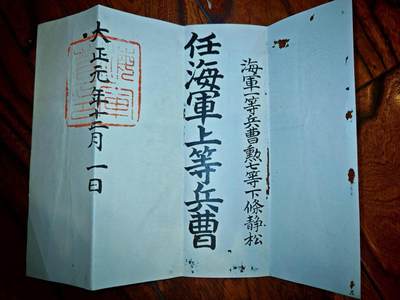 海軍一等兵曹勲七等下條静松
任海軍上等兵曹
大正元年十二月一日